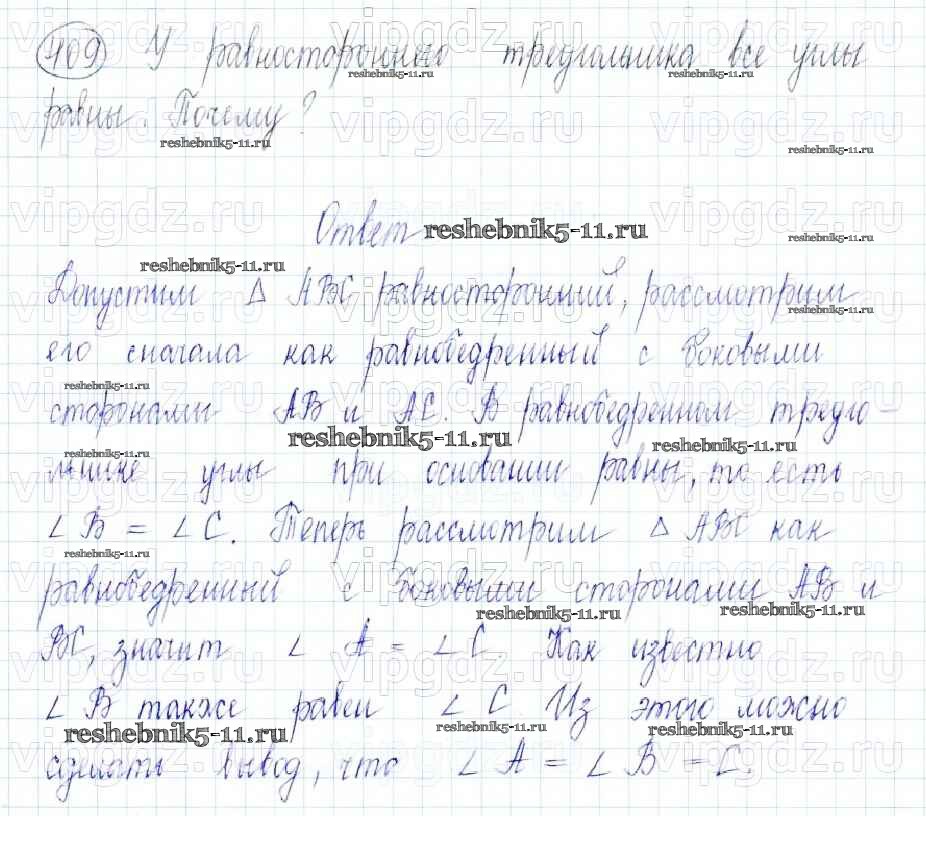 409 У равностороннего треугольника все углы
равны. Почему?
Ответ
Допустим Δ ABC равносторонний, рассмотрим
его сначала как равнобедренный с боковыми
сторонами AB и AC. В равнобедренном треуго-
льнике углы при основании равны, то есть
∠ B = ∠ C. Теперь рассмотрим Δ ABC как
равнобедренный с боковыми сторонами AB и
BC, значит ∠ A = ∠ C. Как известно
∠ B также равен ∠ C Из этого можно
сделать вывод, что ∠ A = ∠ B = C.
vipgdz.ru
reshebnik5-11.ru